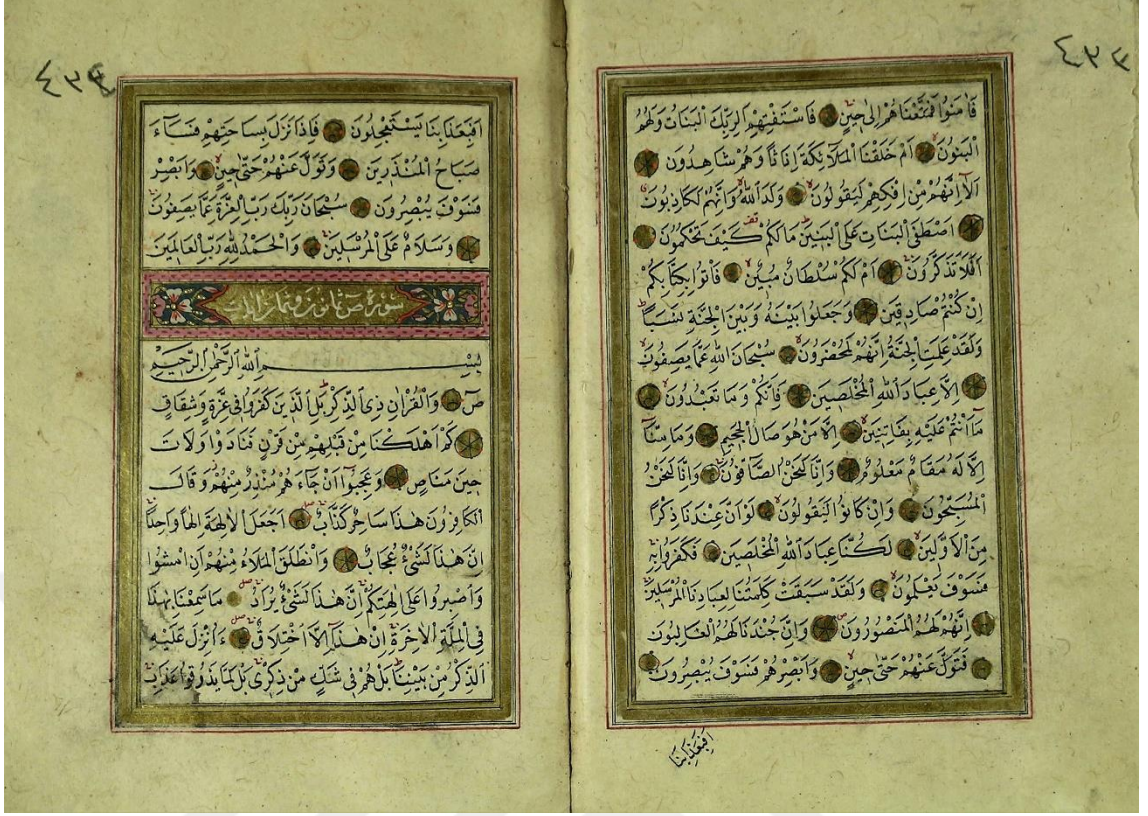 ٤٢٣
فَاٰمَنُوا فَمَتَّعْنَاهُمْ اِلٰى حِينٍ فَاسْتَفْتِهِمْ اَلِرَبِّكَ الْبَنَاتُ وَلَهُمُ
الْبَنُونَ اَمْ خَلَقْنَا الْمَلَائِكَةَ اِنَاثًا وَهُمْ شَاهِدُونَ
اَلَا اِنَّهُمْ مِنْ اِفْكِهِمْ لَيَقُولُونَ وَلَدَ اللهُ وَاِنَّهُمْ لَكَاذِبُونَ
اَصْطَفَى الْبَنَاتِ عَلَى الْبَنِينَ مَالَكُمْ كَيْفَ تَحْكُمُونَ
اَفَلَا تَذَكَّرُونَ اَمْ لَكُمْ سُلْطَانٌ مُبِينٌ فَأْتُوا بِكِتَابِكُمْ
اِنْ كُنْتُمْ صَادِقِينَ وَجَعَلُوا بَيْنَهُ وَبَيْنَ الْجِنَّةِ نَسَبًا
وَلَقَدْ عَلِمَتِ الْجِنَّةُ اِنَّهُمْ لَمُحْضَرُونَ سُبْحَانَ اللهِ عَمَّا يَصِفُونَ
اِلَّا عِبَادَ اللهِ الْمُخْلَصِينَ فَاِنَّكُمْ وَمَا تَعْبُدُونَ
مَا اَنْتُمْ عَلَيْهِ بِفَاتِنِينَ اِلَّا مَنْ هُوَ صَالِ الْجَحِيمِ وَمَا مِنَّا
اِلَّا لَهُ مَقَامٌ مَعْلُومٌ وَاِنَّا لَنَحْنُ الصَّافُّونَ وَاِنَّا لَنَحْنُ
الْمُسَبِّحُونَ وَاِنْ كَانُوا لَيَقُولُونَ لَوْ اَنَّ عِنْدَنَا ذِكْرًا
مِنَ الْاَوَّلِينَ لَكُنَّا عِبَادَ اللهِ الْمُخْلَصِينَ فَكَفَرُوا بِهِ
فَسَوْفَ يَعْلَمُونَ وَلَقَدْ سَبَقَتْ كَلِمَتُنَا لِعِبَادِنَا الْمُرْسَلِينَ
اِنَّهُمْ لَهُمُ الْمَنْصُورُونَ وَاِنَّ جُنْدَنَا لَهُمُ الْغَالِبُونَ
فَتَوَلَّ عَنْهُمْ حَتّٰى حِينٍ وَاَبْصِرْهُمْ فَسَوْفَ يُبْصِرُونَ
اَفَبِعَذَابِنَا
اَفَبِعَذَابِنَا يَسْتَعْجِلُونَ فَاِذَا نَزَلَ بِسَاحَتِهِمْ فَسَاءَ
صَبَاحُ الْمُنْذَرِينَ وَتَوَلَّ عَنْهُمْ حَتّٰى حِينٍ وَاَبْصِرْ
فَسَوْفَ يُبْصِرُونَ سُبْحَانَ رَبِّكَ رَبِّ الْعِزَّةِ عَمَّا يَصِفُونَ
وَسَلَامٌ عَلَى الْمُرْسَلِينَ وَالْحَمْدُ لِلّٰهِ رَبِّ الْعَالَمِينَ
سورة ص ثمانون وثمان ايات
بِسْمِ اللهِ الرَّحْمٰنِ الرَّحِيمِ
صٓ وَالْقُرْاٰنِ ذِى الذِّكْرِ بَلِ الَّذِينَ كَفَرُوا فِى عِزَّةٍ وَشِقَاقٍ
كَمْ اَهْلَكْنَا مِنْ قَبْلِهِمْ مِنْ قَرْنٍ فَنَادَوْا وَلَاتَ
حِينَ مَنَاصٍ وَعَجِبُوا اَنْ جَاءَهُمْ مُنْذِرٌ مِنْهُمْ وَقَالَ
الْكَافِرُونَ هٰذَا سَاحِرٌ كَذَّابٌ اَجَعَلَ الْاٰلِهَةَ اِلٰهًا وَاحِدًا
اِنَّ هٰذَا لَشَىْءٌ عُجَابٌ وَانْطَلَقَ الْمَلَاُ مِنْهُمْ اَنِ امْشُوا
وَاصْبِرُوا عَلٰى اٰلِهَتِكُمْ اِنَّ هٰذَا لَشَىْءٌ يُرَادُ مَا سَمِعْنَا بِهٰذَا
فِى الْمِلَّةِ الْاٰخِرَةِ اِنْ هٰذَا اِلَّا اخْتِلَاقٌ ءَاُنْزِلَ عَلَيْهِ
الذِّكْرُ مِنْ بَيْنِنَا بَلْ هُمْ فِى شَكٍّ مِنْ ذِكْرِى بَلْ لَمَّا يَذُوقُوا عَذَابِ